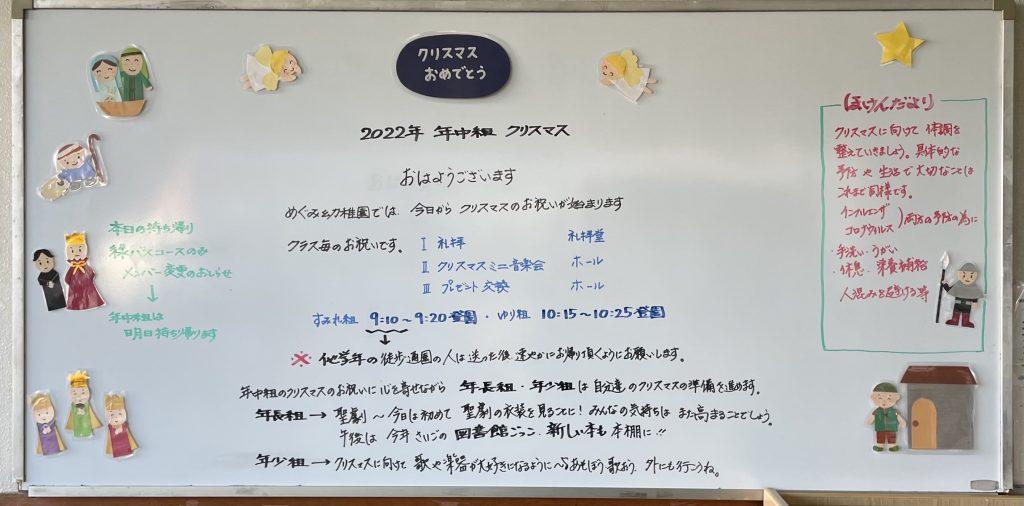 クリスマス
おめでとう
2022年 年中組 クリスマス
おはようございます
めぐみ幼稚園では 今日から クリスマスのお祝いが始まります
クラス毎のお祝いです。
Ⅰ 礼拝 礼拝堂
Ⅱ クリスマスミニ音楽会 ホール
Ⅲ プレゼント交換 ホール
すみれ組 9:10〜9:20登園・ゆり組 10:15〜10:25登園
※ 他学年の徒歩通園の人は送った後 速やかにお帰り頂くようにお願いします。
年中組のクリスマスのお祝いに心を寄せながら 年長組・年少組は自分達のクリスマスの準備を進めます。
年長組→ 聖劇〜今日は初めて 聖劇の衣装を見ることに!みんなの気持ちは また高まることでしょう。
午後は 今年さいごの 図書館ごっこ、新しい本も本棚に!!
年少組→クリスマスに向けて 歌や楽器が大好きになるように あそぼう 歌おう。外にも行こうね。
本日の持ち帰り
緑バスコースのみ
メンバー変更のおしらせ
↓
年中組は
明日持ち帰ります
ほけんだより
クリスマスに向けて 体調を
整えていきましょう。具体的な
予防や生活で大切なことは
これまで同様です。
インフルエンザ
コロナウィルス 両方の予防の為に
・手洗い・うがい
・休息・栄養補給
人混みを避ける等